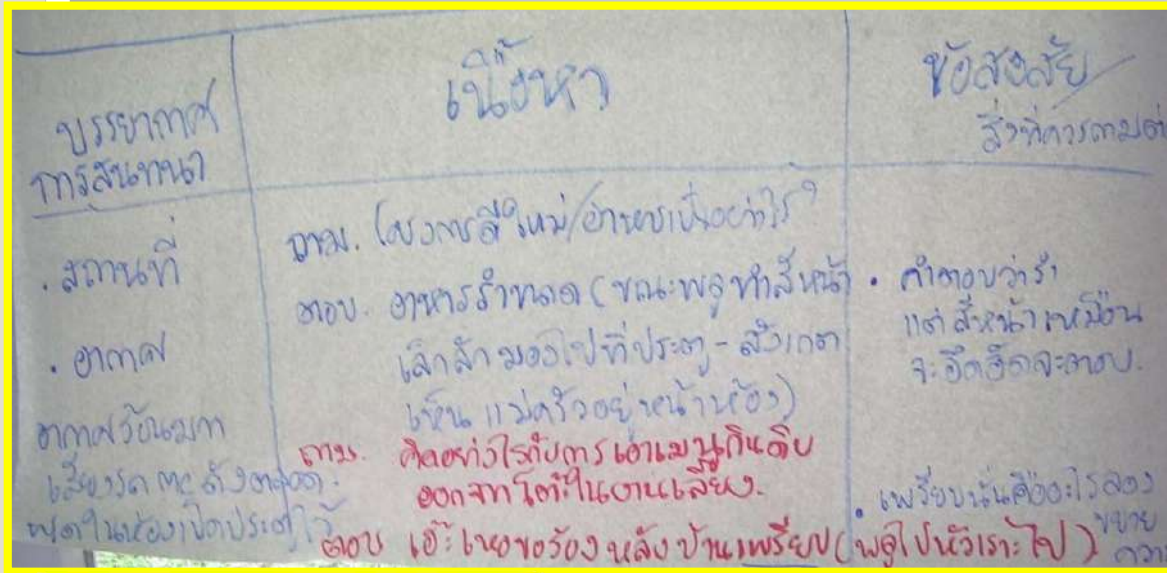 บรรยากาศ
การสนทนา
เนื้อหา
ข้อสงสัย/
สิ่งที่ควรถามต่อ
. สถานที่
. อากาศ
อากาศร้อนมาก
เสียงรถ ดังตลอด.
พูดในห้องเปิดประตูไว้
ถาม. โครงการดีไหม/อาหารเป็นอย่างไร?
ตอบ. อาหารรำขนาด (ขณะพูดทำสีหน้า
เล็กลั่ก มองไปที่ประตู - สังเกต
เห็น แม่ครัวอยู่หน้าห้อง)
ถาม. คิดอย่างไรกับการเอาเมนูกินดิบ
ออกจากโต๊ะในงานเลี้ยง.
ตอบ เอ๊ะ ขอร้อง หลังบ้านเพรียบ (พูดไปหัวเราะไป)
. คำตอบว่ารำ
แต่สีหน้าเหมือน
จะอึดอัดจะตอบ.
. เพรียบนั่นคืออะไรลอง
ขยาย
ความ